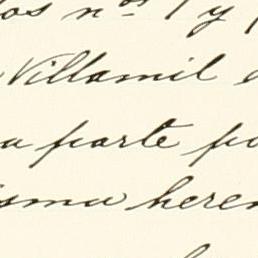 os nos 1 y
Villamil
a parte po
sma heren